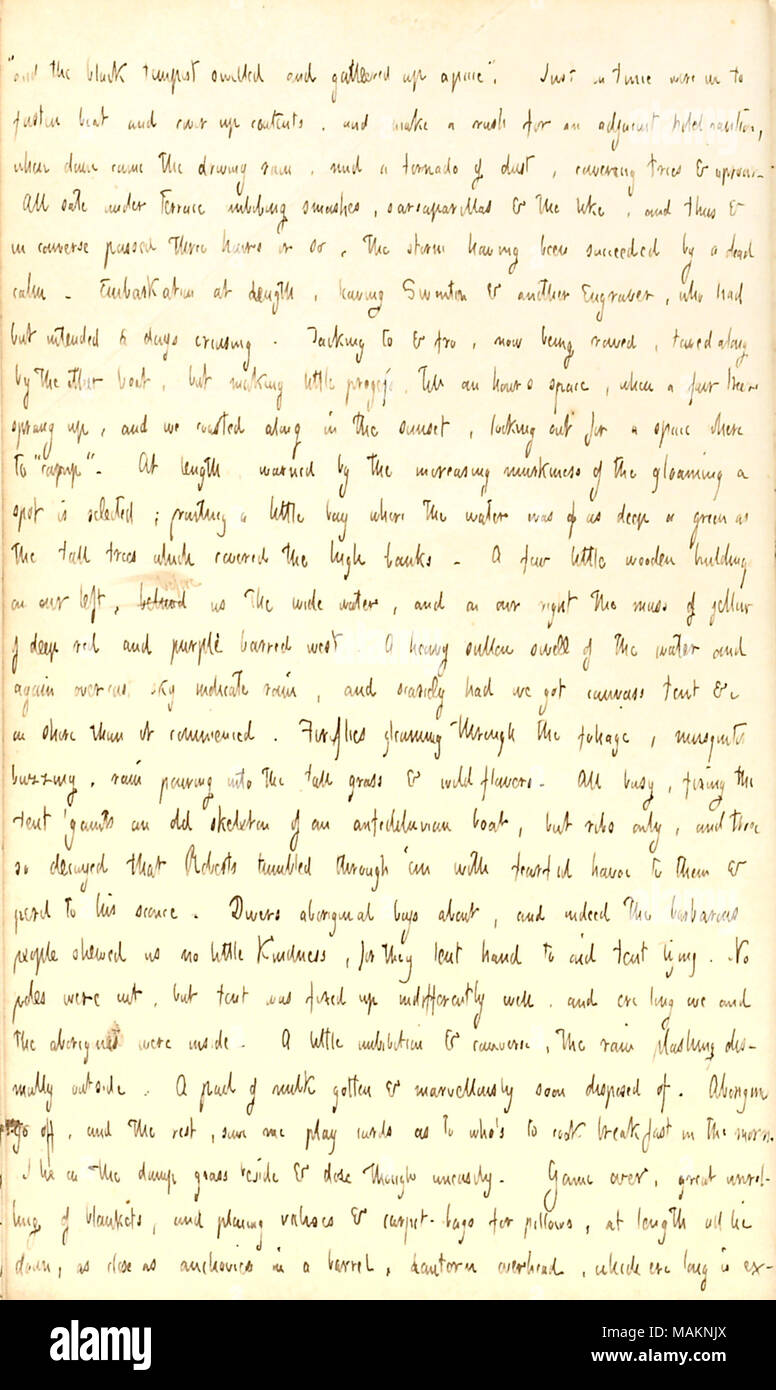 "and the black tempest swelled and gathered up apace". Just in time were we to
fasten boat and cover up contents, and make a rush for an adjacent hotel
when down came the driving rain, and a tornado of dust, covering trees &
All sate under terrace imbibing smashes, sarsaparillas & the like, and thus &
in converse passed three hours or so, the storm having been succeeded by a dead
calm. Embarkation at length, leaving Swinton & another Engraver, who had
but intended days cruising. Tacking to & fro, now being rowed, towed along
by the other boat, but making little progress, till an hour's space, when a fair breeze
sprang up, and we coasted along in the sunset, looking out for a space where
to "camp". At length warned by the increasing murkiness of the gloaming a
spot is selected; fronting a little bay where the water was of as deep a green as
the tall trees which covered the high banks. A few little wooden building
on our left, behind before us the wide water, and on our right the mass of yellow
of deep red and purple barred west. A heavy sullen swell of the water and
again overcast sky indicate rain, and scarcely had we got canvass tent &c
on shore than it commenced. Fireflies gleaming through the foliage, musquitos
buzzing, rain pouring into the tall grass & wild flowers. All busy, fixing the
tent 'gainst an old skeleton of an antediluvian boat, but ribs only, and those
so decayed that Roberts tumbled through 'em with fearful havoc to them &
peril to his sconce. Divers aboriginal boys about, and indeed the barbarous
people shewed us no little Kindness, for they lent hand to aid tent tying. No
poles were cut, but tent was fixed up indifferently well, and ere long we and
the aborigines were inside. A little imbibition & converse, the rain plashing dis-
mally outside. A pail of milk gotten & marvellously soon disposed of. Aborigin
go off, and the rest, save me play cards as to who's to cook breakfast in the morn.
I lie on the damp grass beside & doze though uneasily. Game over, great unrol-
ling of blankets, and placing valises & carpet-bags for pillows, at length all lie
down, as close as anchovies in a barrel, Lantern overhead, which ere long is ex-
alamy
a
alamy
Image ID: MAKNJX
www.alamy.com